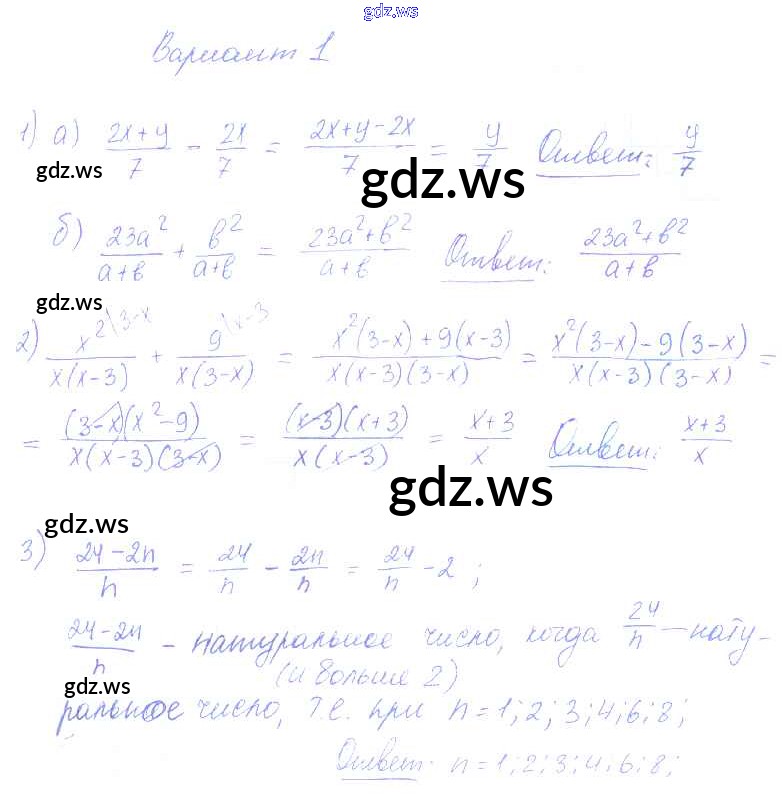 gdz.ws
Вариант 1
1) а) (2x+y)/7 - 2x/7 = (2x+y-2x)/7 = y/7 Ответ: y/7
gdz.ws gdz.ws
б) 23a²/(a+b) + b²/(a+b) = (23a²+b²)/(a+b) Ответ: (23a²+b²)/(a+b)
gdz.ws
2) x²\3-x/(x(x-3)) + 9\x-3/(x(3-x)) = (x²(3-x)+9(x-3))/(x(x-3)(3-x)) = (x²(3-x)-9(3-x))/(x(x-3)(3-x)) =
= ((3-x)(x²-9))/(x(x-3)(3-x)) = ((x-3)(x+3))/(x(x-3)) = (x+3)/x Ответ: (x+3)/x
gdz.ws gdz.ws
3) (24-2n)/n = 24/n - 2n/n = 24/n - 2 ;
(24-2n)/n - натуральное число, когда 24/n - нату-
(и больше 2)
gdz.ws
ральное число, т.е. при n = 1; 2; 3; 4; 6; 8;
Ответ: n = 1; 2; 3; 4; 6; 8;